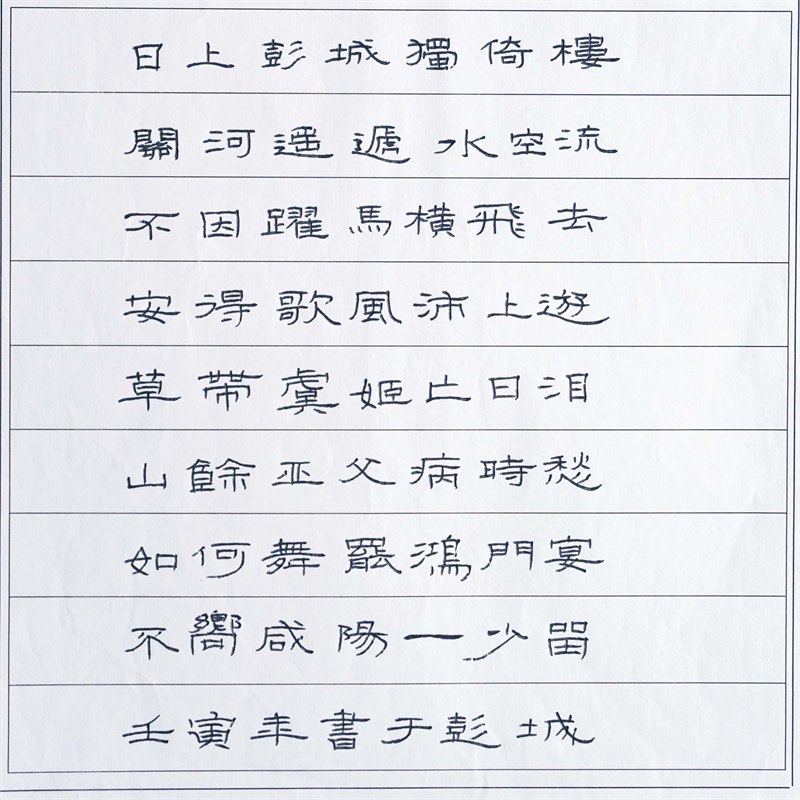 日上彭城獨倚樓
關河遥遞水空流
不因躍馬横飛去
安得歌風沛上遊
草帶虞姬亡日泪
山餘亚父病時愁
如何舞罷鴻門宴
不嚮咸陽一少留
壬寅年書于彭城